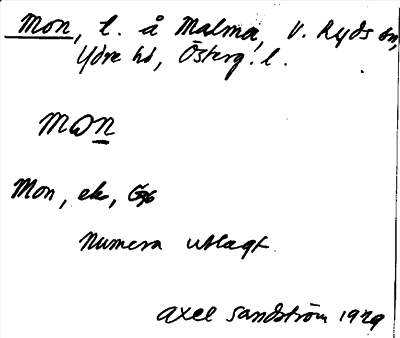 Mon, l. å Malma, V. Ryds sn,
Ydre hd, Österg. l.
mɷn
Mon, ek,
Numera utlagt.
Axel Sandström 1929